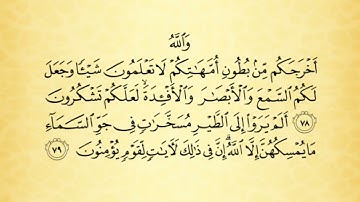 وَٱللَّهُ
أَخْرَجَكُم مِّنۢ بُطُونِ أُمَّهَـٰتِكُمْ لَا تَعْلَمُونَ شَيْـًٔا وَجَعَلَ
لَكُمُ ٱلسَّمْعَ وَٱلْأَبْصَـٰرَ وَٱلْأَفْـِٔدَةَ ۙ لَعَلَّكُمْ تَشْكُرُونَ
٧٨ أَلَمْ يَرَوْا۟ إِلَى ٱلطَّيْرِ مُسَخَّرَٰتٍ فِى جَوِّ ٱلسَّمَآءِ
مَا يُمْسِكُهُنَّ إِلَّا ٱللَّهُ ۗ إِنَّ فِى ذَٰلِكَ لَـَٔايَـٰتٍ لِّقَوْمٍ يُؤْمِنُونَ ٧٩